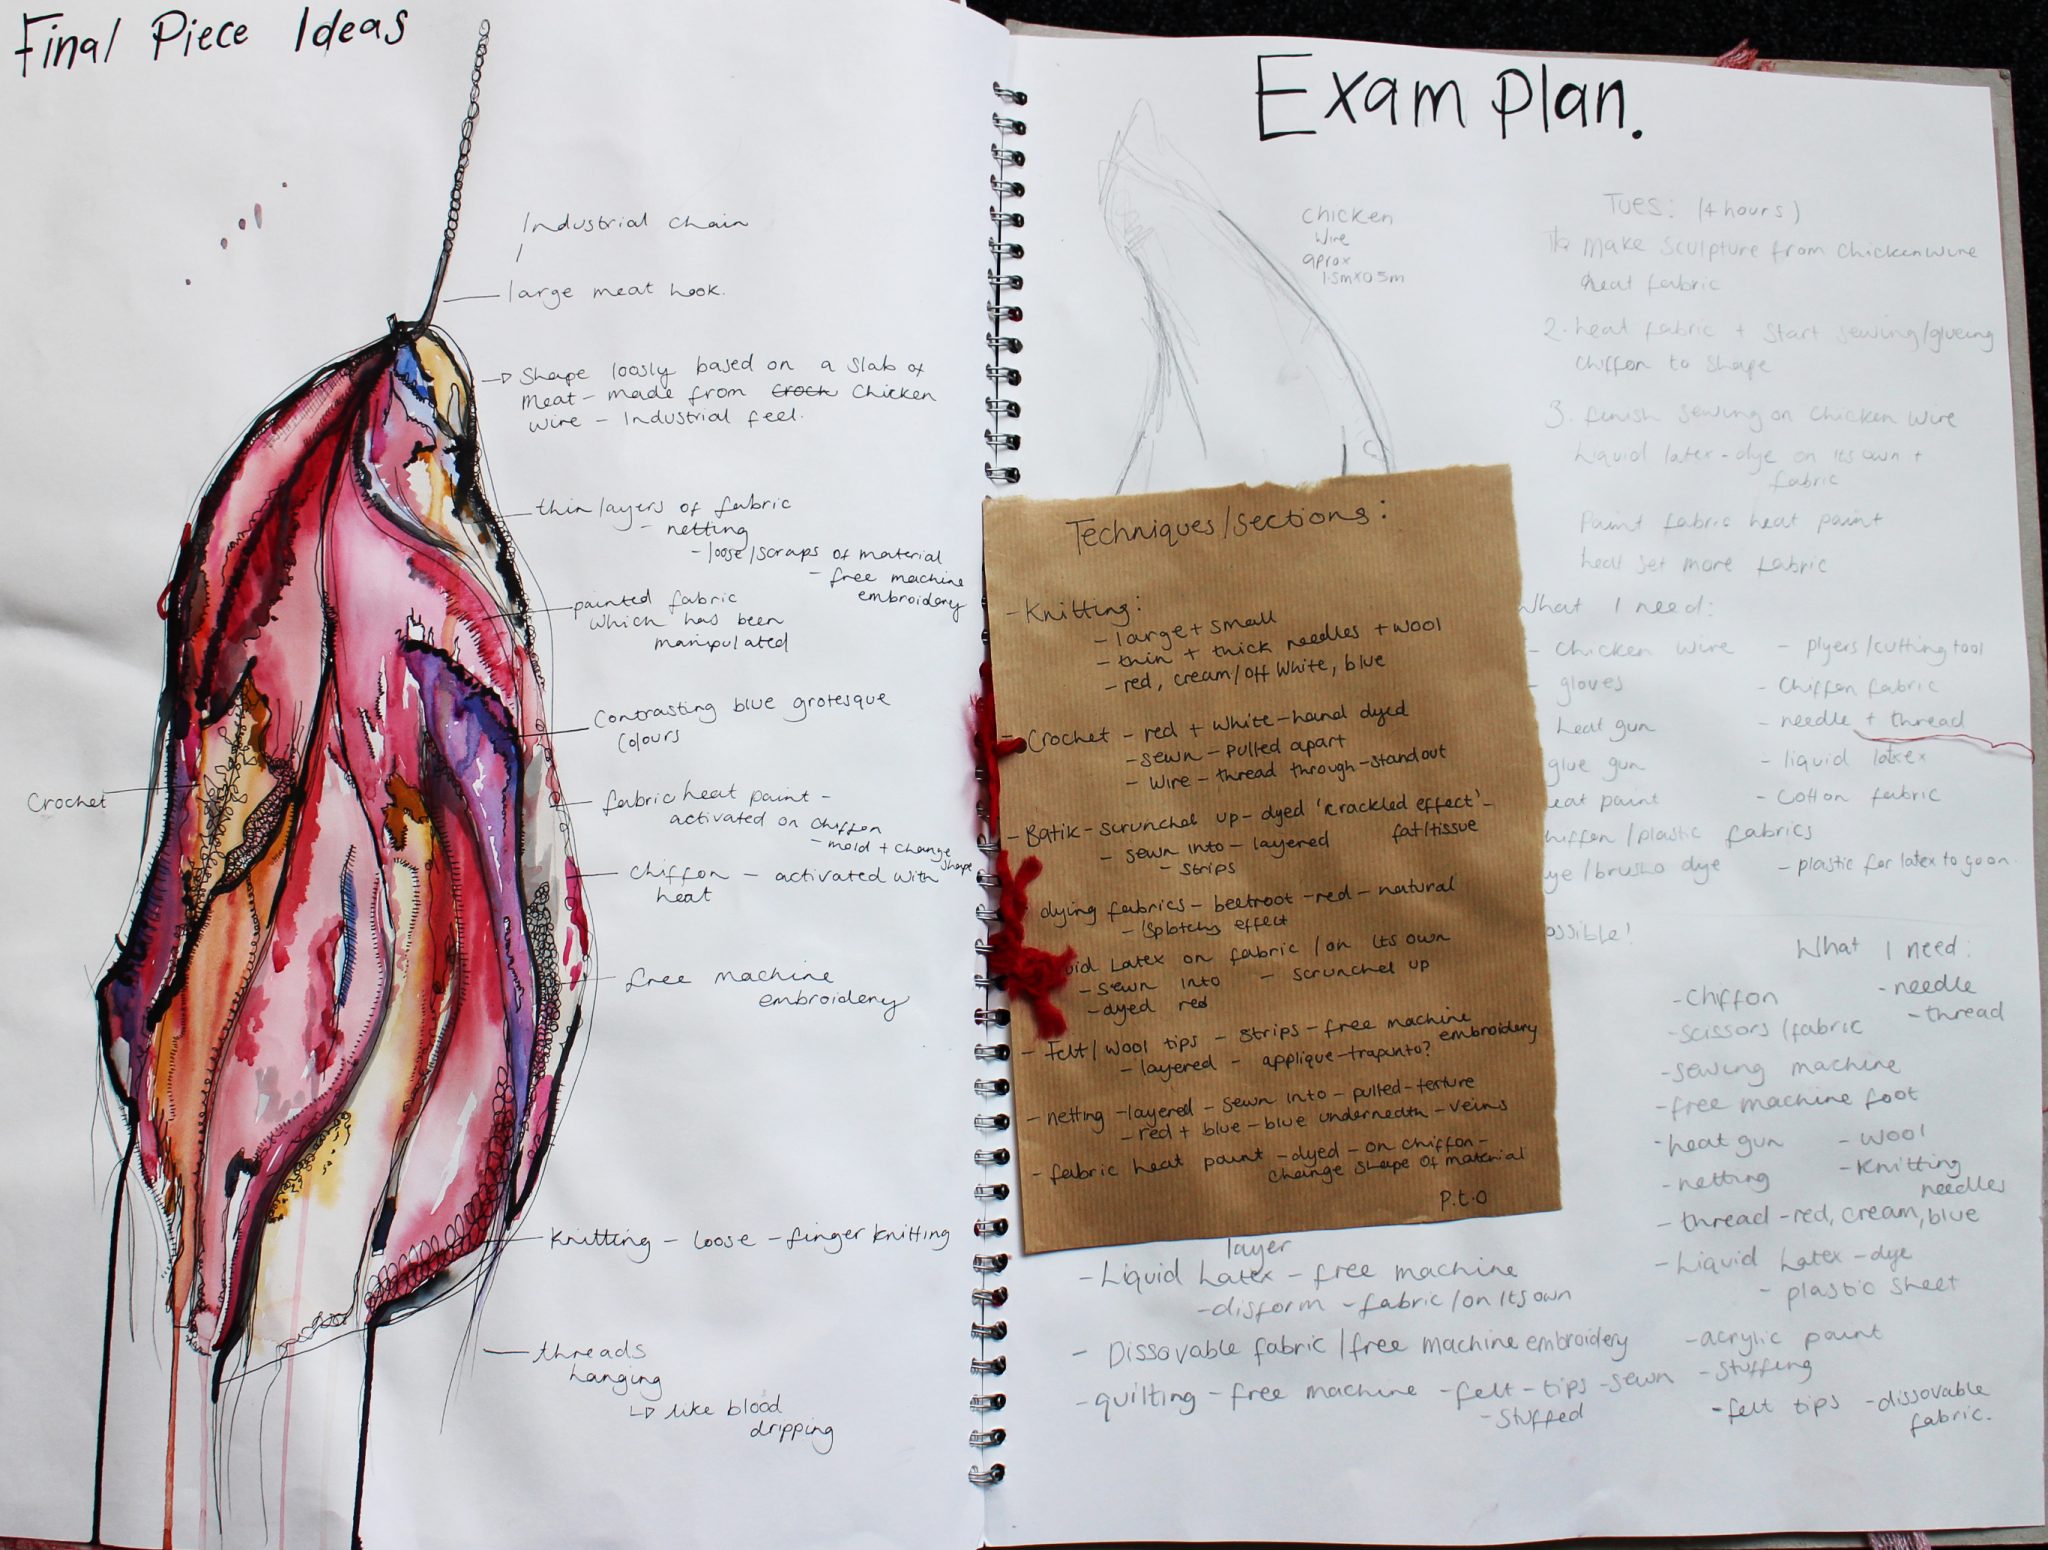 Final Piece Ideas
Industrial chain
large meat hook.
Shape loosly based on a slab of
meat - made from Croch Chicken
wire - Industrial feel.
thin layers of fabric
- netting
- loose/scraps of material
- free machine
embroidery
painted fabric
which has been
manipulated
Contrasting blue grotesque
colours
Crochet
fabric heat paint -
activated on chiffon
- mold + change
shape
chiffon - activated with
heat
free machine
embroidery
Knitting - loose - finger knitting
threads
hanging
like blood
dripping
Exam Plan.
chicken
wire
aprox
1.5m x 0.5m
Tues: (4 hours)
Make sculpture from chicken wire
heat fabric
2. heat fabric + start sewing/glueing
chiffon to shape
3. finish sewing on chicken wire
Liquid latex - dye on its own +
fabric
Paint fabric heat paint
heat set more fabric
What I need:
- chicken wire - plyers/cutting tool
- gloves - Chiffon fabric
heat gun - needle + thread
glue gun - liquid latex
eat paint - Cotton fabric
hiffon/plastic fabrics
ye/brusho dye - plastic for latex to go on.
ossible!
Techniques/sections:
- Knitting:
- large + small
- thin + thick needles + wool
- red, cream/off white, blue
- Crochet - red + white - hand dyed
- sewn - pulled apart
- wire - thread through - stand out
- Batik - scrunched up - dyed 'crackled effect' -
- sewn into - layered fat/tissue
- strips
dying fabrics - beetroot - red - natural
- 'splotchy effect
uid Latex on fabric / on its own
- sewn into - scrunched up
- dyed red
- Felt/wool tips - strips - free machine
embroidery
- layered - applique - trapunto?
- netting - layered - sewn into - pulled - texture
- red + blue - blue underneath - veins
- fabric heat paint - dyed - on chiffon -
change shape of material
P.t.o
What I need:
- Chiffon - needle
- scissors/fabric - thread
- sewing machine
- free machine foot
- heat gun - wool
- netting - Knitting
needles
- thread - red, cream, blue
- Liquid Latex - dye
- plastic sheet
- acrylic paint
- stuffing
- felt tips - dissovable
fabric.
layer
- Liquid Latex - free machine
- disform - fabric/on its own
- Dissovable fabric/free machine embroidery
- quilting - free machine - felt - tips - sewn
- stuffed